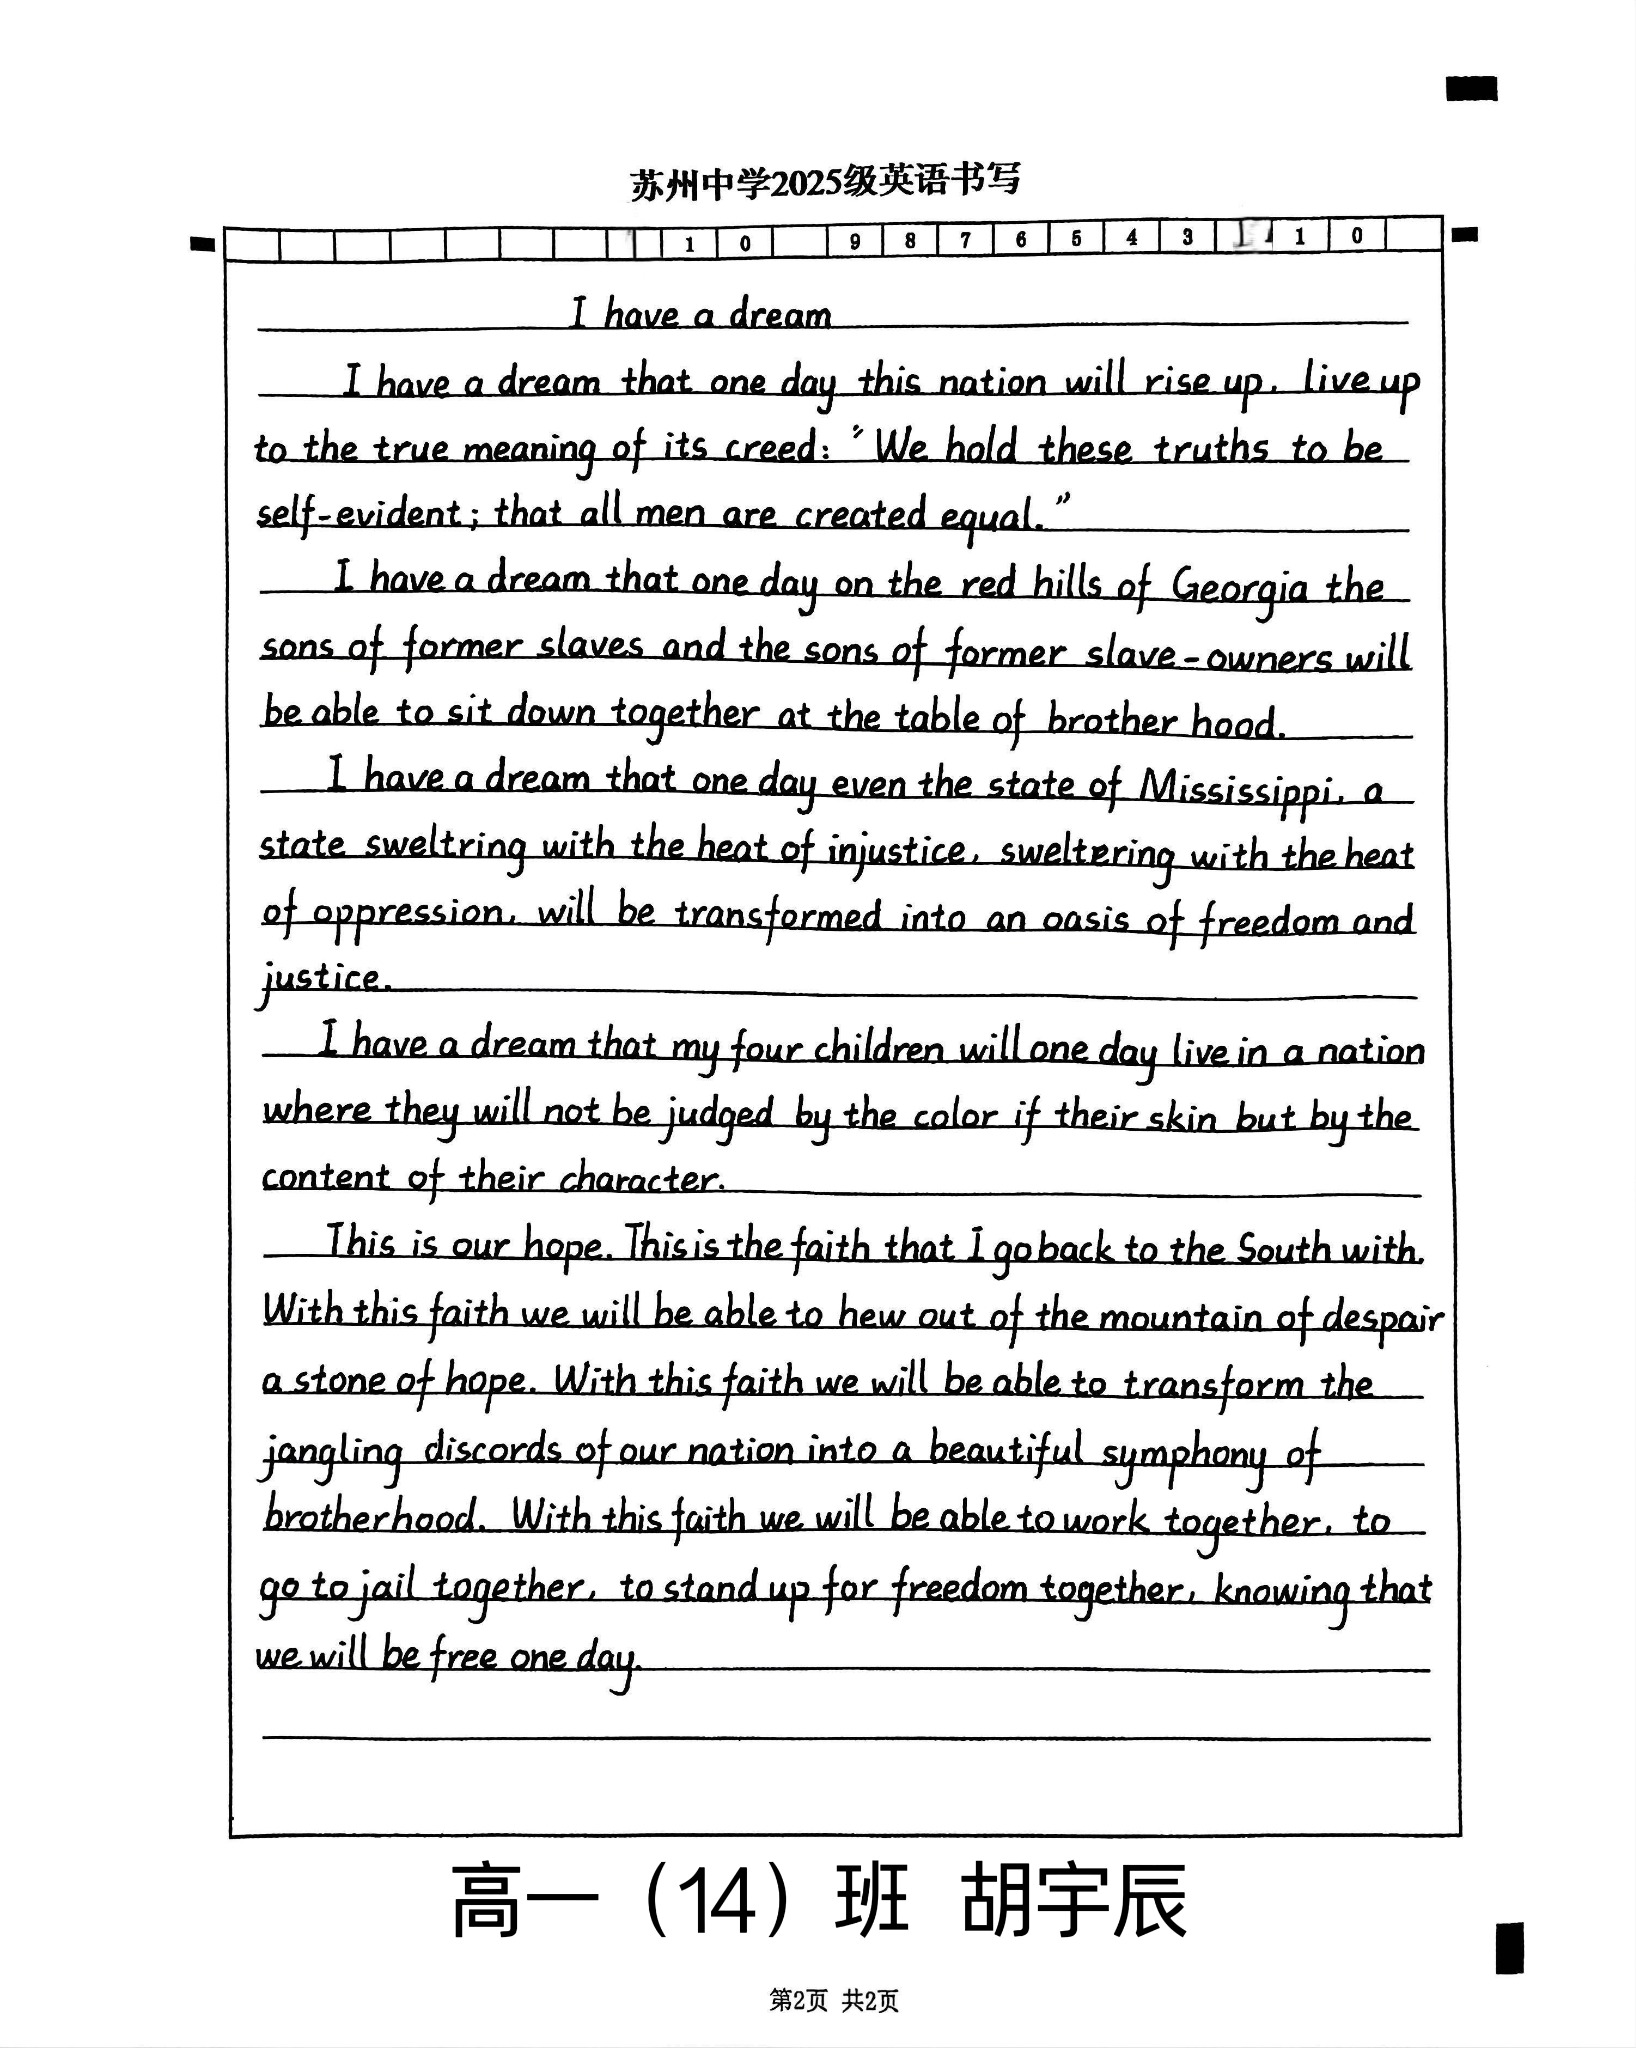 苏州中学2025级英语书写
1 0 9 8 7 6 5 4 3 1 0
I have a dream
I have a dream that one day this nation will rise up, live up
to the true meaning of its creed: "We hold these truths to be
self-evident; that all men are created equal."
I have a dream that one day on the red hills of Georgia the
sons of former slaves and the sons of former slave-owners will
be able to sit down together at the table of brother hood.
I have a dream that one day even the state of Mississippi, a
state sweltring with the heat of injustice, sweltering with the heat
of oppression, will be transformed into an oasis of freedom and
justice.
I have a dream that my four children will one day live in a nation
where they will not be judged by the color if their skin but by the
content of their character.
This is our hope. This is the faith that I go back to the South with.
With this faith we will be able to hew out of the mountain of despair
a stone of hope. With this faith we will be able to transform the
jangling discords of our nation into a beautiful symphony of
brotherhood. With this faith we will be able to work together, to
go to jail together, to stand up for freedom together, knowing that
we will be free one day.
高一（14）班 胡宇辰
第2页 共2页